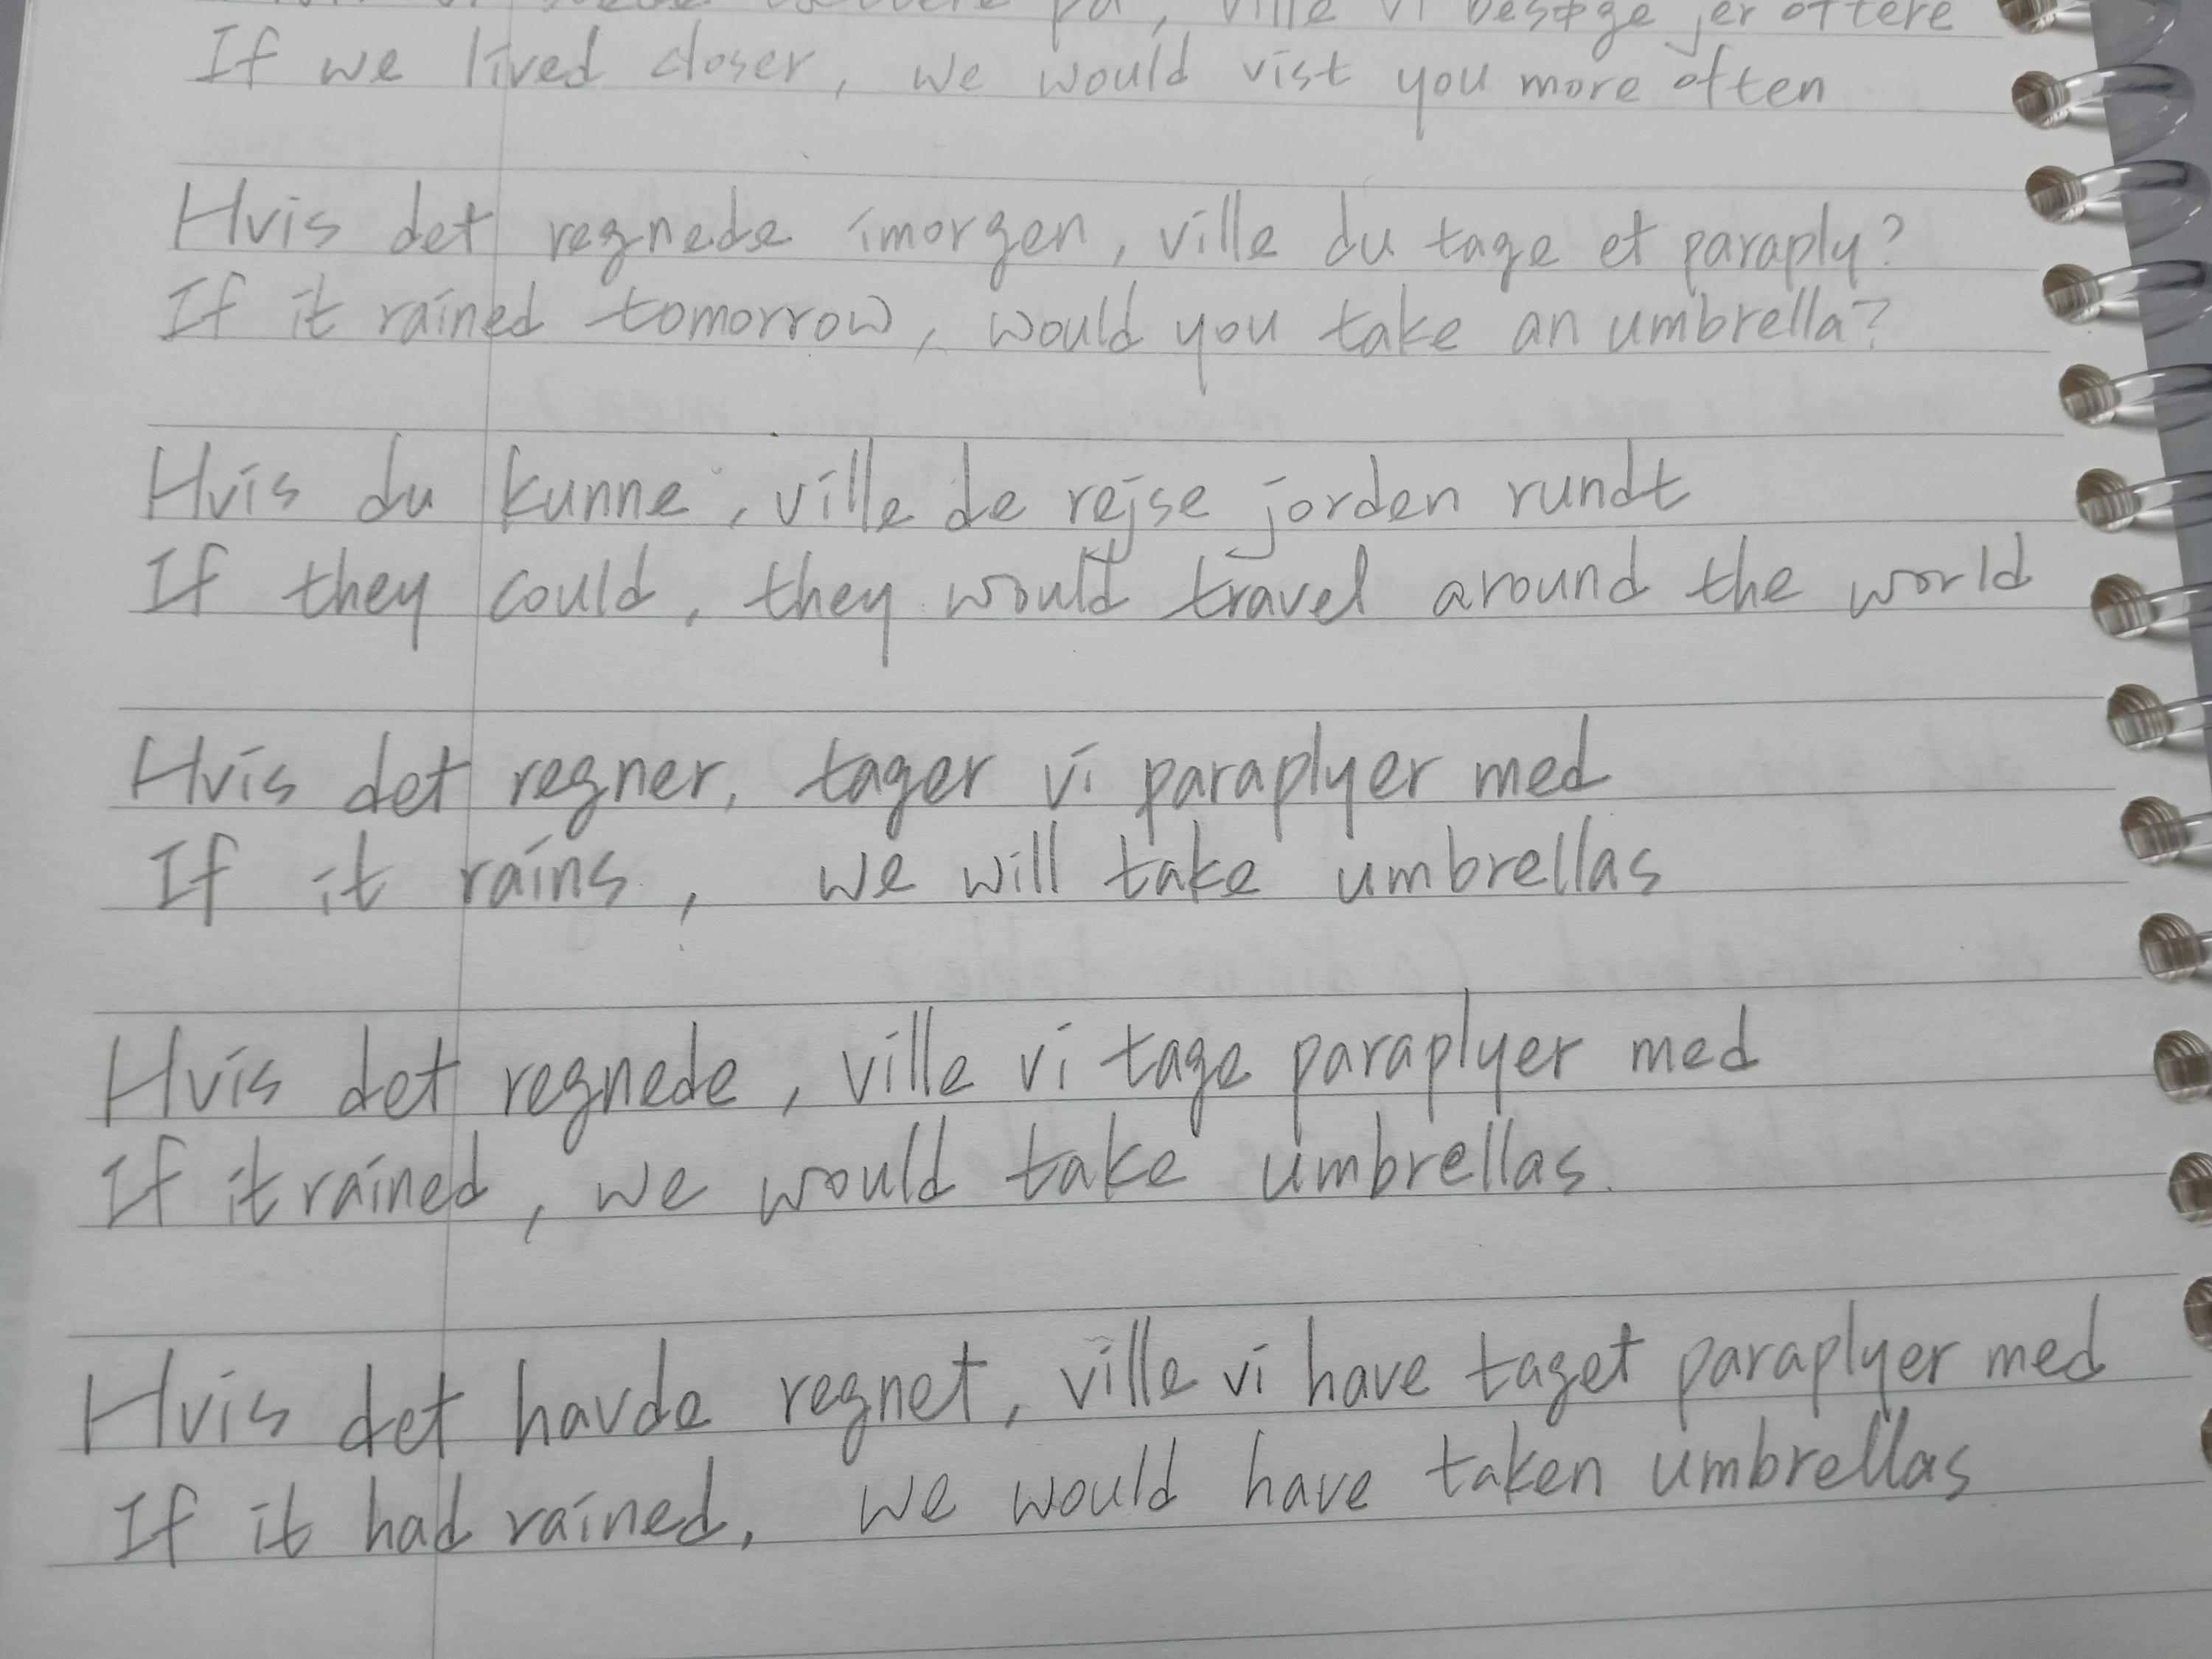 på, ville vi besøge jer oftere
If we lived closer, we would vist you more often
Hvis det regnede imorgen, ville du tage et paraply?
If it rained tomorrow, would you take an umbrella?
Hvis du kunne, ville de rejse jorden rundt
If they could, they would travel around the world
Hvis det regner, tager vi paraplyer med
If it rains, we will take umbrellas
Hvis det regnede, ville vi tage paraplyer med
If it rained, we would take umbrellas.
Hvis det havde regnet, ville vi have taget paraplyer med
If it had rained, we would have taken umbrellas